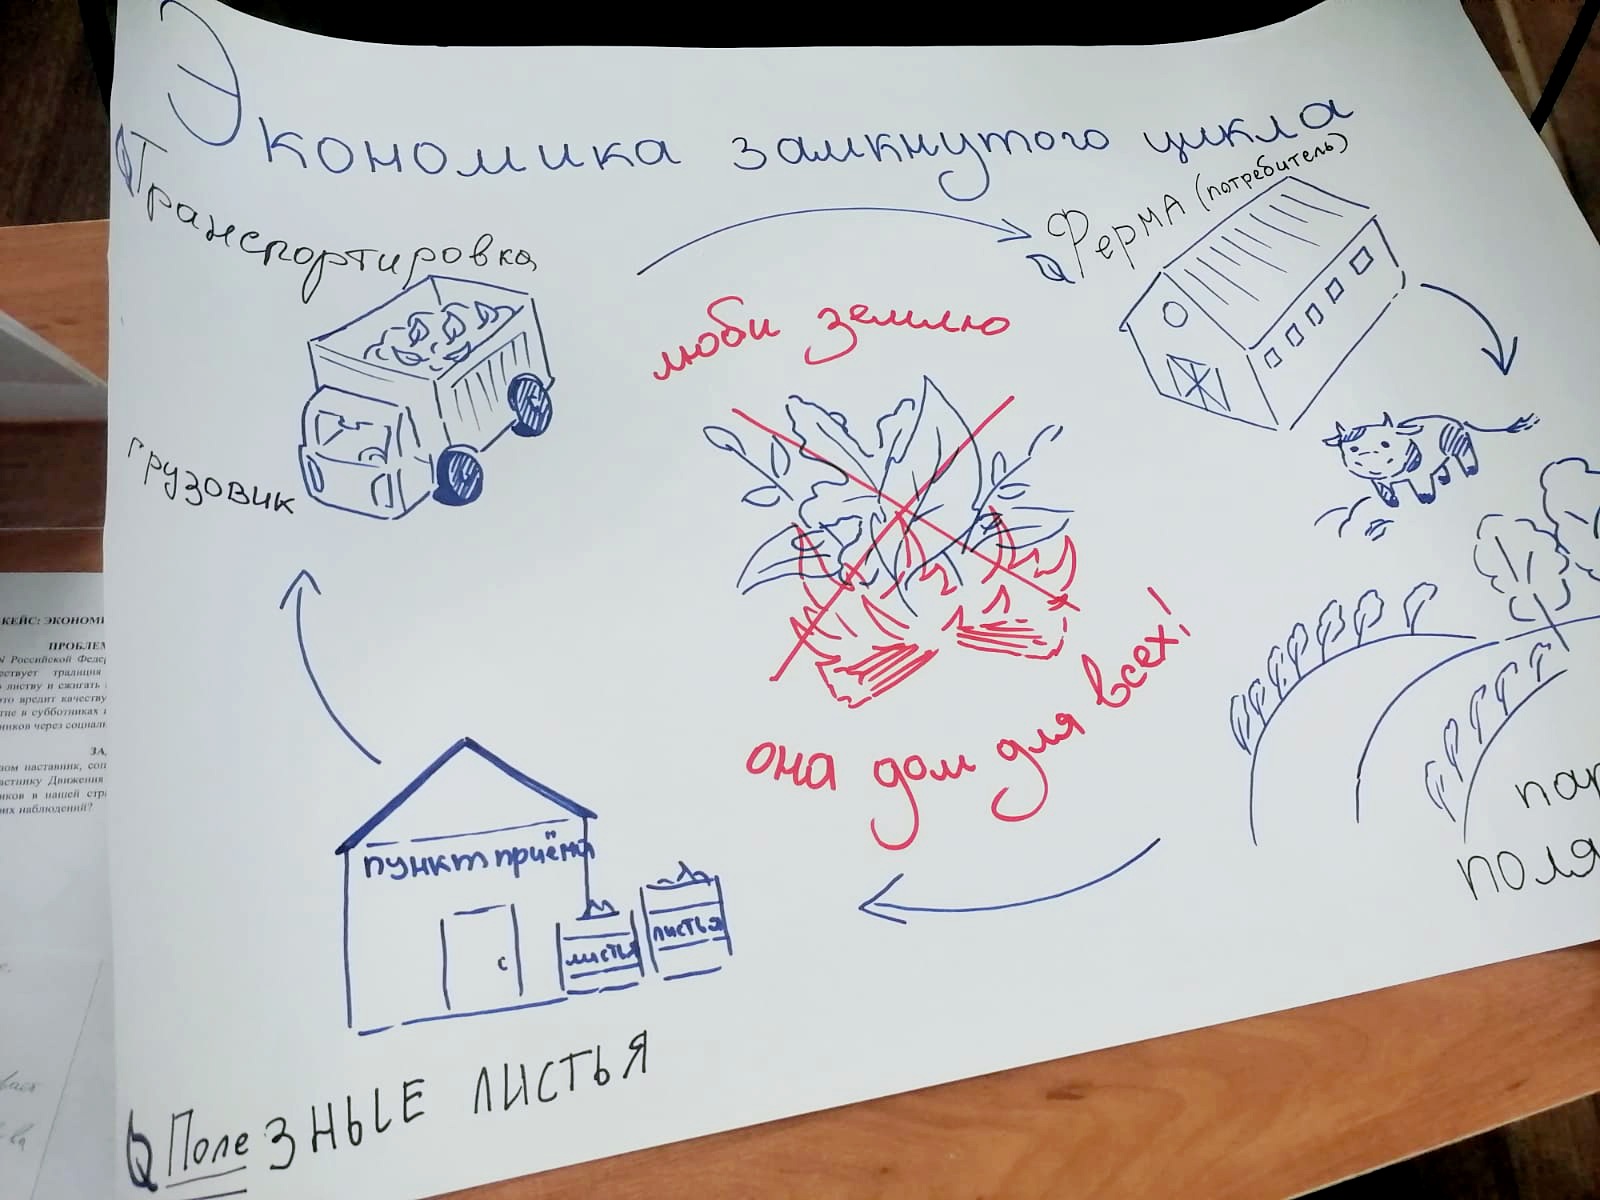 Экономика замкнутого цикла
Транспортировка
Ферма (потребитель)
люби землю
грузовик
она дом для всех!
пар
поля
пункт приёма
листья
листья
Полезные листья
КЕЙС: ЭКОНОМИ
ПРОБЛЕМ
Российской Федер
ествует традиция
листву и сжигать
это вредит качеству
тие в субботниках и
ников через социаль
ЗА
вом наставник, соп
астнику Движения
иков в нашей стра
оих наблюдений?